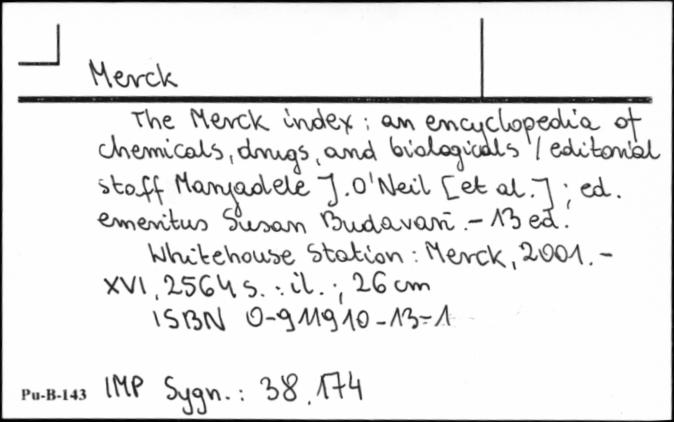 Merck
The Merck index : an encyclopedia of
chemicals, drugs, and biologicals / editorial
staff Maryadele J. O'Neil [et al.] ; ed.
emeritus Susan Budavari. - 13 ed.
Whitehouse Station : Merck, 2001. -
XVI, 2564 s. : il. ; 26 cm
ISBN 0-911910-13-1
Pu-B-143 IMP Sygn. : 38.174